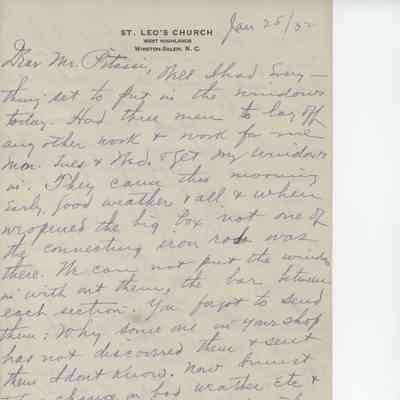 ST. LEO'S CHURCH
WEST HIGHLANDS
WINSTON-SALEM, N. C.
Jan 25/32
Dear Mr. Pitassi,
Well I had every-
thing set to put in the windows
today. Had three men to lay off
any other work & work for me
Mon. Tues & Wed. & get my windows
in. They came this morning
early, good weather & all & when
we opened the big box not one of
the connecting iron rods was
there. We can not put the windows
in with out them, the bar between
each section. You forgot to send
them: Why some one in your shop
has not discovered them & sent
them I dont know. Now I must
change in bad weather etc &